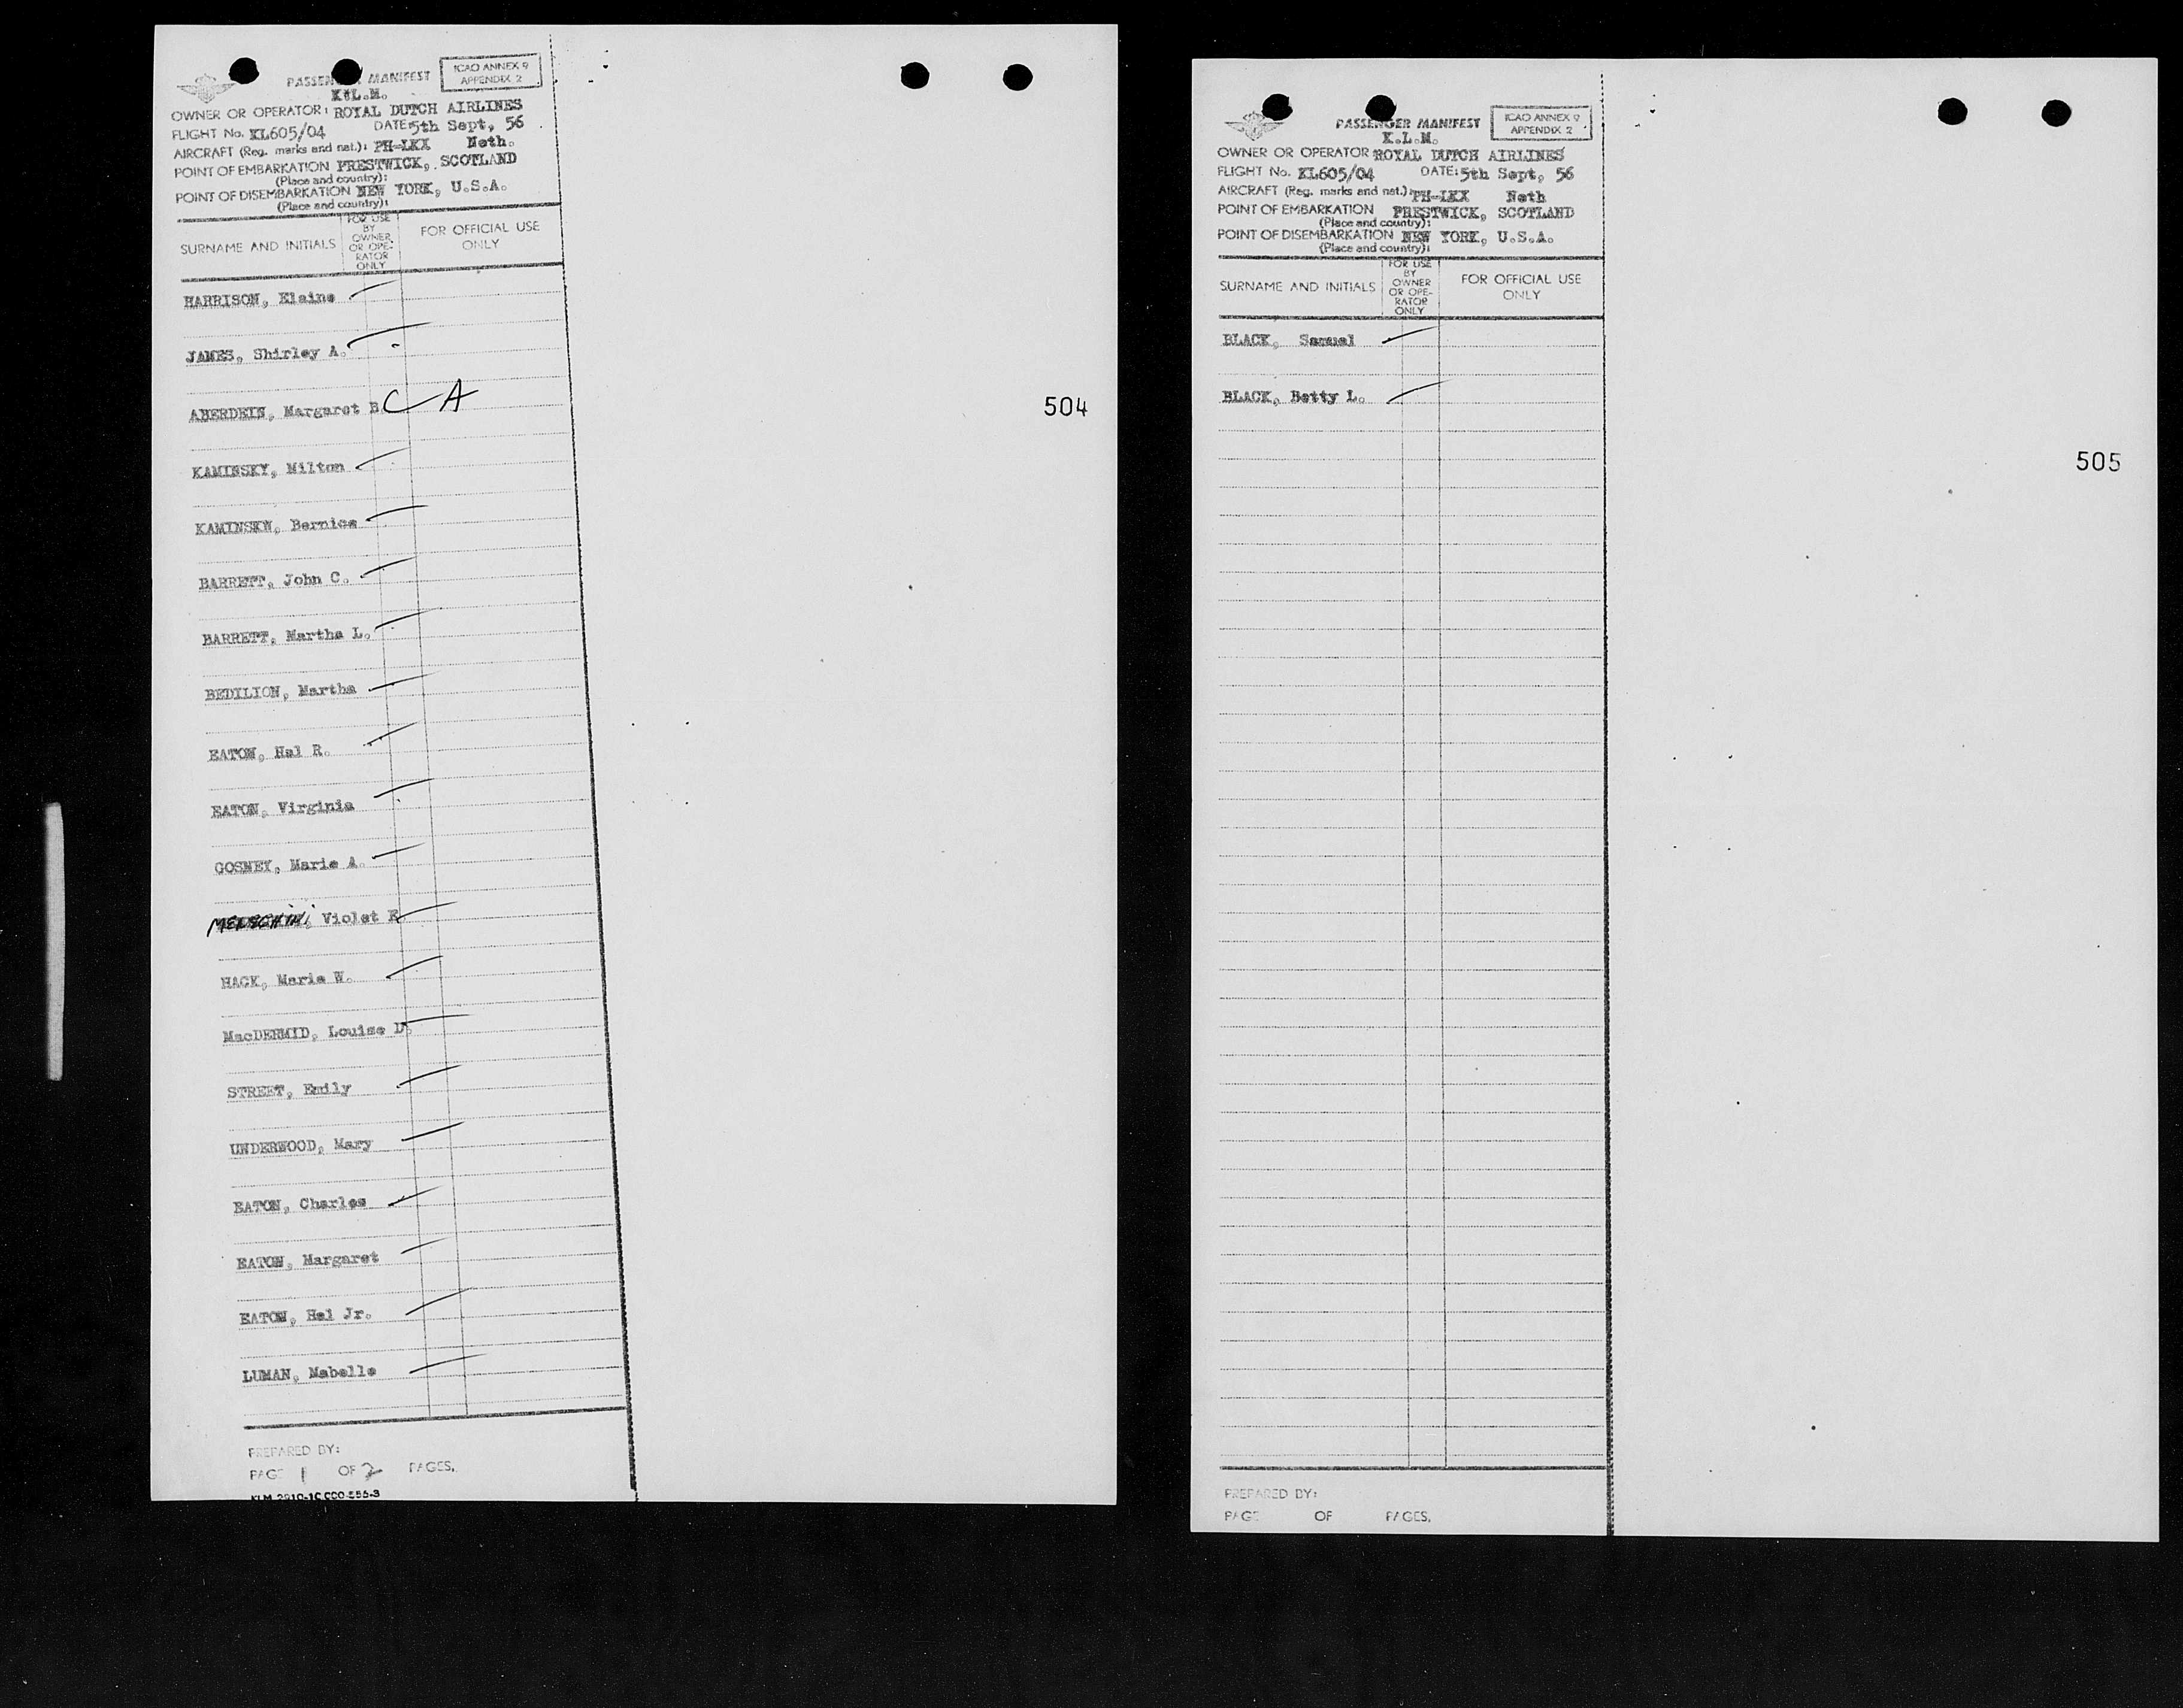 PASSENGER MANIFEST
ICAO ANNEX 9
APPENDIX 2
K.L.M.
OWNER OR OPERATOR: ROYAL DUTCH AIRLINES
FLIGHT No. KL605/04 DATE: 5th Sept, 56
AIRCRAFT (Reg. marks and nat.): PH-LKX Neth.
POINT OF EMBARKATION PRESTWICK, SCOTLAND
(Place and country):
POINT OF DISEMBARKATION NEW YORK, U.S.A.
(Place and country):
SURNAME AND INITIALS
FOR USE
BY
OWNER
OR OPE-
RATOR
ONLY
FOR OFFICIAL USE
ONLY
HARRISON, Elaine
JAMES, Shirley A.
ABERDEIN, Margaret B. C A
504
KAMINSKY, Milton
KAMINSKN, Bernice
BARRETT, John C.
BARRETT, Martha L.
BEDILION, Martha
EATON, Hal R.
EATON, Virginia
GOSNEY, Marie A.
Violet E
HACK, Marie W.
MacDERMID, Louise D.
STREET, Emily
UNDERWOOD, Mary
EATON, Charles
EATON, Margaret
EATON, Hal Jr.
LUMAN, Mabelle
PREPARED BY:
PAGE 1 OF 2 PAGES.
PASSENGER MANIFEST
ICAO ANNEX 9
APPENDIX 2
K.L.M.
OWNER OR OPERATOR ROYAL DUTCH AIRLINES
FLIGHT No. KL605/04 DATE: 5th Sept, 56
AIRCRAFT (Reg. marks and nat.): PH-LKX Neth
POINT OF EMBARKATION PRESTWICK, SCOTLAND
(Place and country):
POINT OF DISEMBARKATION NEW YORK, U.S.A.
(Place and country):
SURNAME AND INITIALS
FOR USE
BY
OWNER
OR OPE-
RATOR
ONLY
FOR OFFICIAL USE
ONLY
BLACK, Samuel
BLACK, Betty L.
505
PREPARED BY:
PAGE OF PAGES.